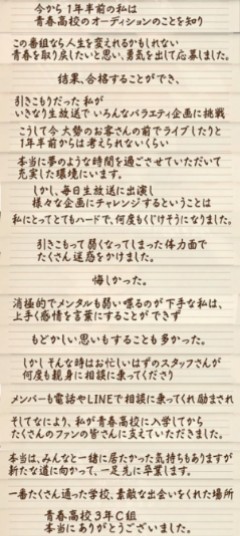 今から１年半前の私は
青春高校のオーディションのことを知り
この番組なら人生を変えれるかもしれない
青春を取り戻したいと思い、勇気を出して応募しました。
結果、合格することができ、
引きこもりだった私が
いきなり生放送でいろんなバラエティ企画に挑戦
こうして今大勢のお客さんの前でライブしたりと
１年半前からは考えられないくらい
本当に夢のような時間を過ごさせていただいて
充実した環境にいます。
しかし、毎日生放送に出演し
様々な企画にチャレンジするということは
私にとってとてもハードで、何度もくじけそうになりました。
引きこもって弱くなってしまった体力面で
たくさん迷惑をかけました。
悔しかった。
消極的でメンタルも弱い喋るのが下手な私は、
上手く感情を言葉にすることができず
もどかしい思いもすることも多かった。
しかしそんな時はお忙しいはずのスタッフさんが
何度も親身に相談に乗ってくださり
メンバーも電話やLINEで相談に乗ってくれ励まされ
そしてなにより、私が青春高校に入学してから
たくさんのファンの皆さんに支えていただきました。
本当は、みんなと一緒に居たかった気持ちもありますが
新たな道に向かって、一足先に卒業します。
一番たくさん通った学校、素敵な出会いをくれた場所
青春高校３年Ｃ組
本当にありがとうございました。